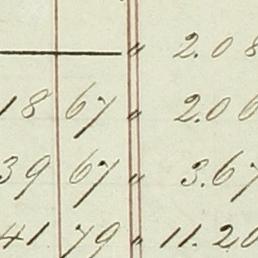 — " 2.08
18 67 " 2.06
39 67 " 3.67
41 79 " 11.20